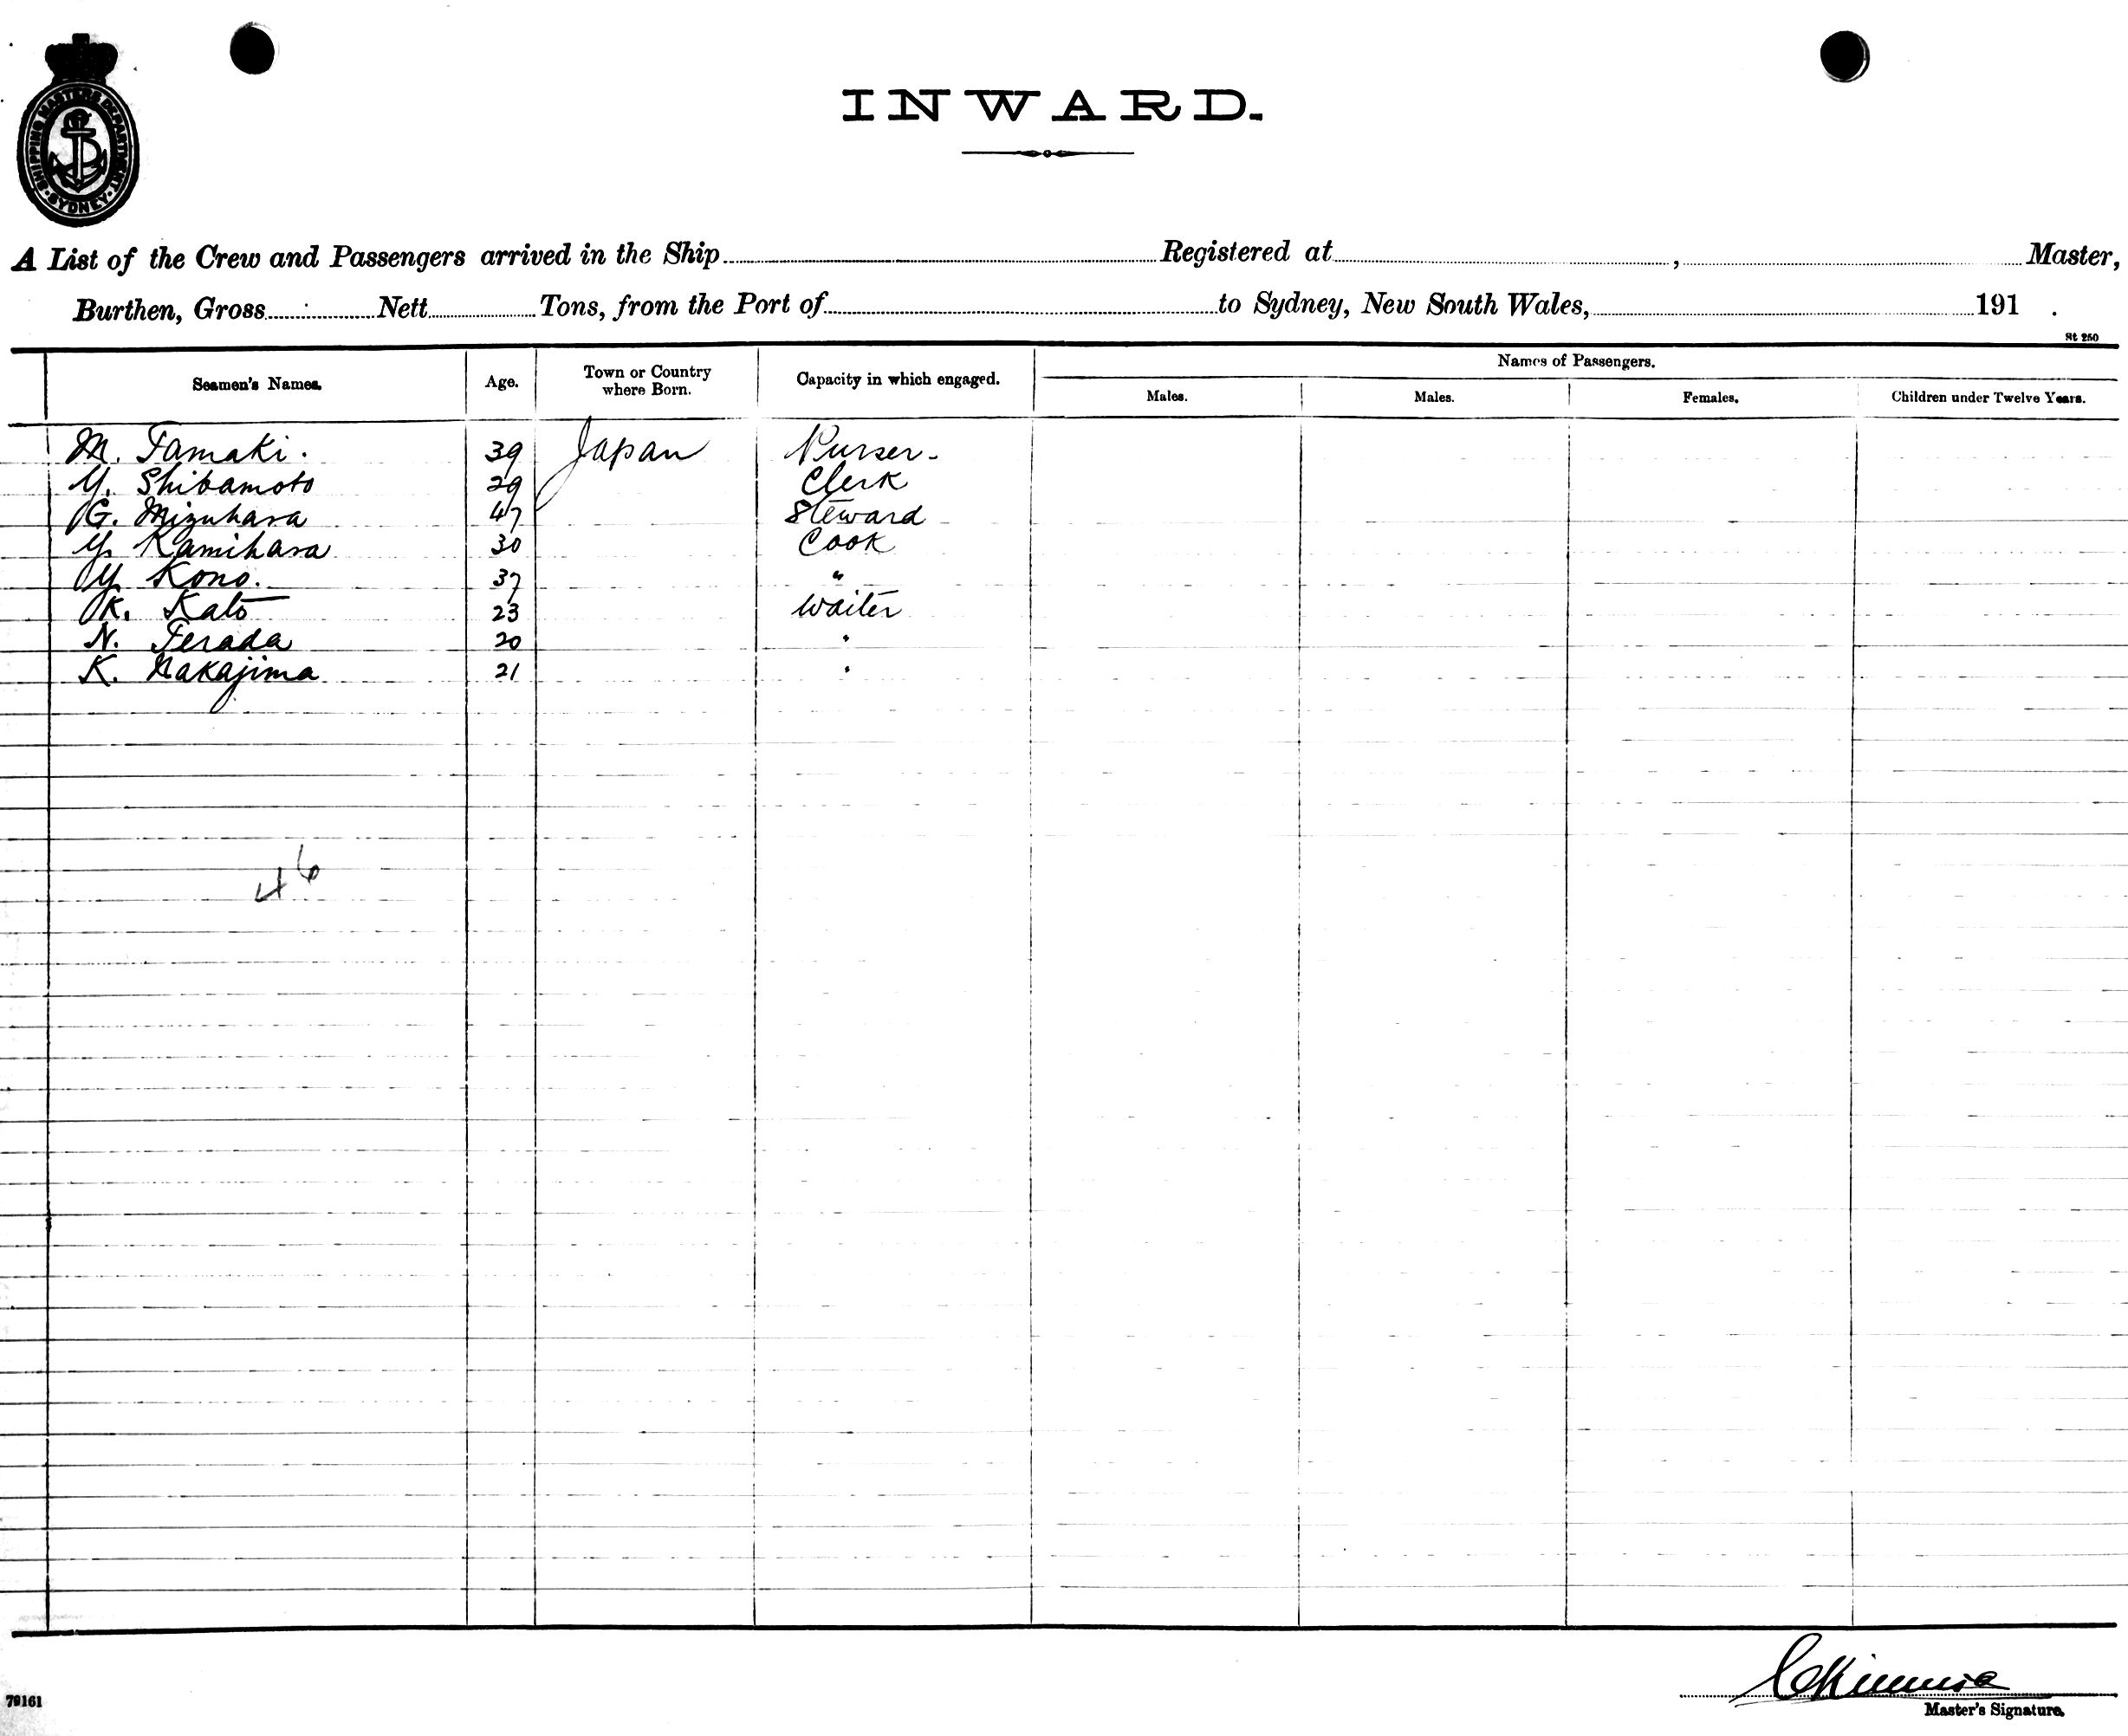 SHIPPING MASTERS DEPARTMENT · SYDNEY ·
INWARD.
A List of the Crew and Passengers arrived in the Ship Registered at , Master,
Burthen, Gross Nett Tons, from the Port of to Sydney, New South Wales, 191 .
St 250
Seamen's Names. Age. Town or Country where Born. Capacity in which engaged. Names of Passengers.
Males. Males. Females. Children under Twelve Years.
M. Tamaki. 39 Japan Purser.
Y. Shibamoto 29 Clerk
G. Mizuhara 47 Steward
Y. Kamihara 30 Cook
Y. Kono. 37 "
K. Kato 23 Waiter
N. Terada 20 "
K. Nakajima 21 "
46
79161
Master's Signature.